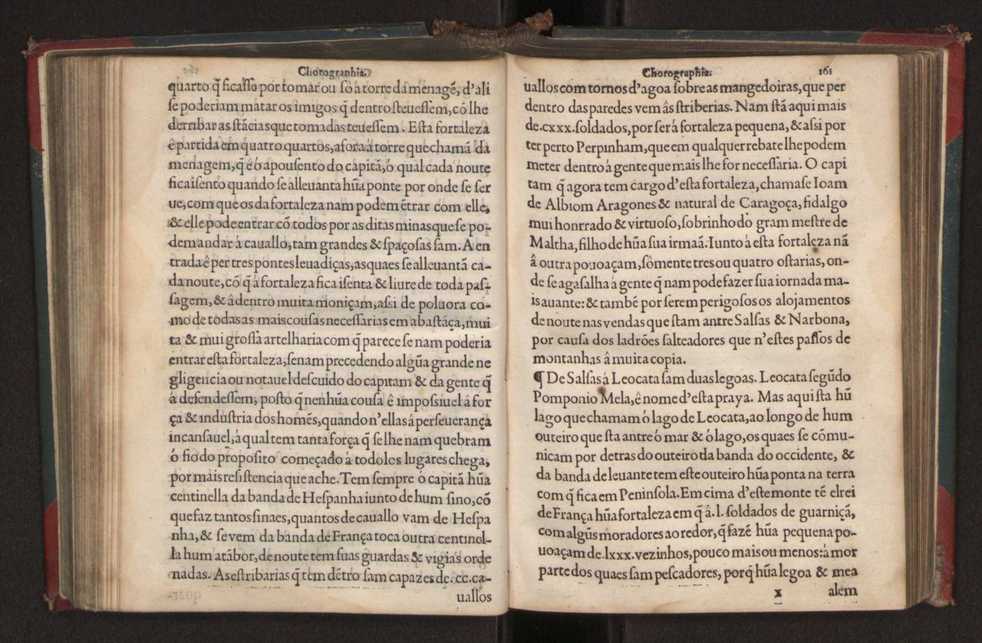 Chorographia.
quarto q̃ ficasso por tomar ou só a torre da menagẽ, d'ali
se poderiam matar os imigos q̃ dentro steuessẽm, cõ lhe
derribar as stácias que tomadas teuessẽm. Esta fortaleza
ê partida em quatro quartos, afora a torre que chamã da
menagem, q̃ é o apousento do capitã, ó qual cada noute
fica isento quando se alleuanta hũa ponte por onde se ser
ue, com que os da fortaleza nam podem ẽtrar com elle,
& elle pode entrar cõ todos por as ditas minas que se po-
dem andar à cauallo, tam grandes & spaçosas sam. A en
trada ê per tres pontes leuadiças, as quaes se alleuantã ca-
da noute, cõ q̃ à fortaleza fica isenta & liure de toda pas-
sagem, & â dentro muita moniçam, assi de poluora co-
mo de todas as mais cousas necessarias em abastãça, mui
ta & mui grossa artelharia com q̃ parece se nam poderia
entrar esta fortaleza, senam precedendo algũa grande ne
gligencia ou notauel descuido do capitam & da gente q̃
à defendessẽm, posto q̃ nenhũa cousa ê impossiuel á for
ça & industria dos homẽs, quando n'ellas á perseuerança
incansauel, à qual tem tanta força q̃ se lhe nam quebram
ó fio do proposito começado à todolos lugares chega,
por mais resistencia que ache. Tem sempre ó capitã hũa
centinella da banda de Hespanha iunto de hum sino, cõ
que faz tantos sinaes, quantos de cauallo vam de Hespa
nha, & se vem da banda de França toca outra centinel-
la hum atãbor, de noute tem suas guardas & vigias orde
nadas. As estribarias q̃ tem dẽtro sam capazes de .cc. ca-
uallos
Chorographia. 161
uallos com tornos d'agoa sobre as mangedoiras, que per
dentro das paredes vem âs striberias. Nam stã aqui mais
de .cxxx. soldados, por ser á fortaleza pequena, & assi por
ter perto Perpinham, que em qualquer rebate lhe podem
meter dentro à gente que mais lhe for necessaria. O capi
tam q̃ agora tem cargo d'esta fortaleza, chamase Ioam
de Albiom Aragones & natural de Caragoça, fidalgo
mui honrrado & virtuoso, sobrinho do gram mestre de
Maltha, filho de hũa sua irmaã. Iunto à esta fortaleza nã
â outra pouoaçam, sómente tres ou quatro ostarias, on-
de se agasalha à gente q̃ nam pode fazer sua iornada ma-
is auante: & tambẽ por serem perigosos os alojamentos
de noute nas vendas que stam antre Salsas & Narbona,
por causa dos ladrões salteadores que n'estes passos de
montanhas â muita copia.
¶ De Salsas à Leocata sam duas legoas. Leocata segũdo
Pomponio Mela, ê nome d'esta praya. Mas aqui sta hũ
lago que chamam ó lago de Leocata, ao longo de hum
outeiro que sta antre ó mar & ó lago, os quaes se cõmu-
nicam por detras do outeiro da banda do occidente, &
da banda de leuante tem este outeiro hũa ponta na terra
com q̃ fica em Peninsola. Em cima d'este monte tẽ elrei
de França hũa fortaleza em q̃ â .l. soldados de guarniçã,
com algũs moradores ao redor, q̃ fazẽ hũa pequena po-
uoaçam de .lxxx. vezinhos, pouco mais ou menos: à mor
parte dos quaes sam pescadores, porq̃ hũa legoa & mea
x alem